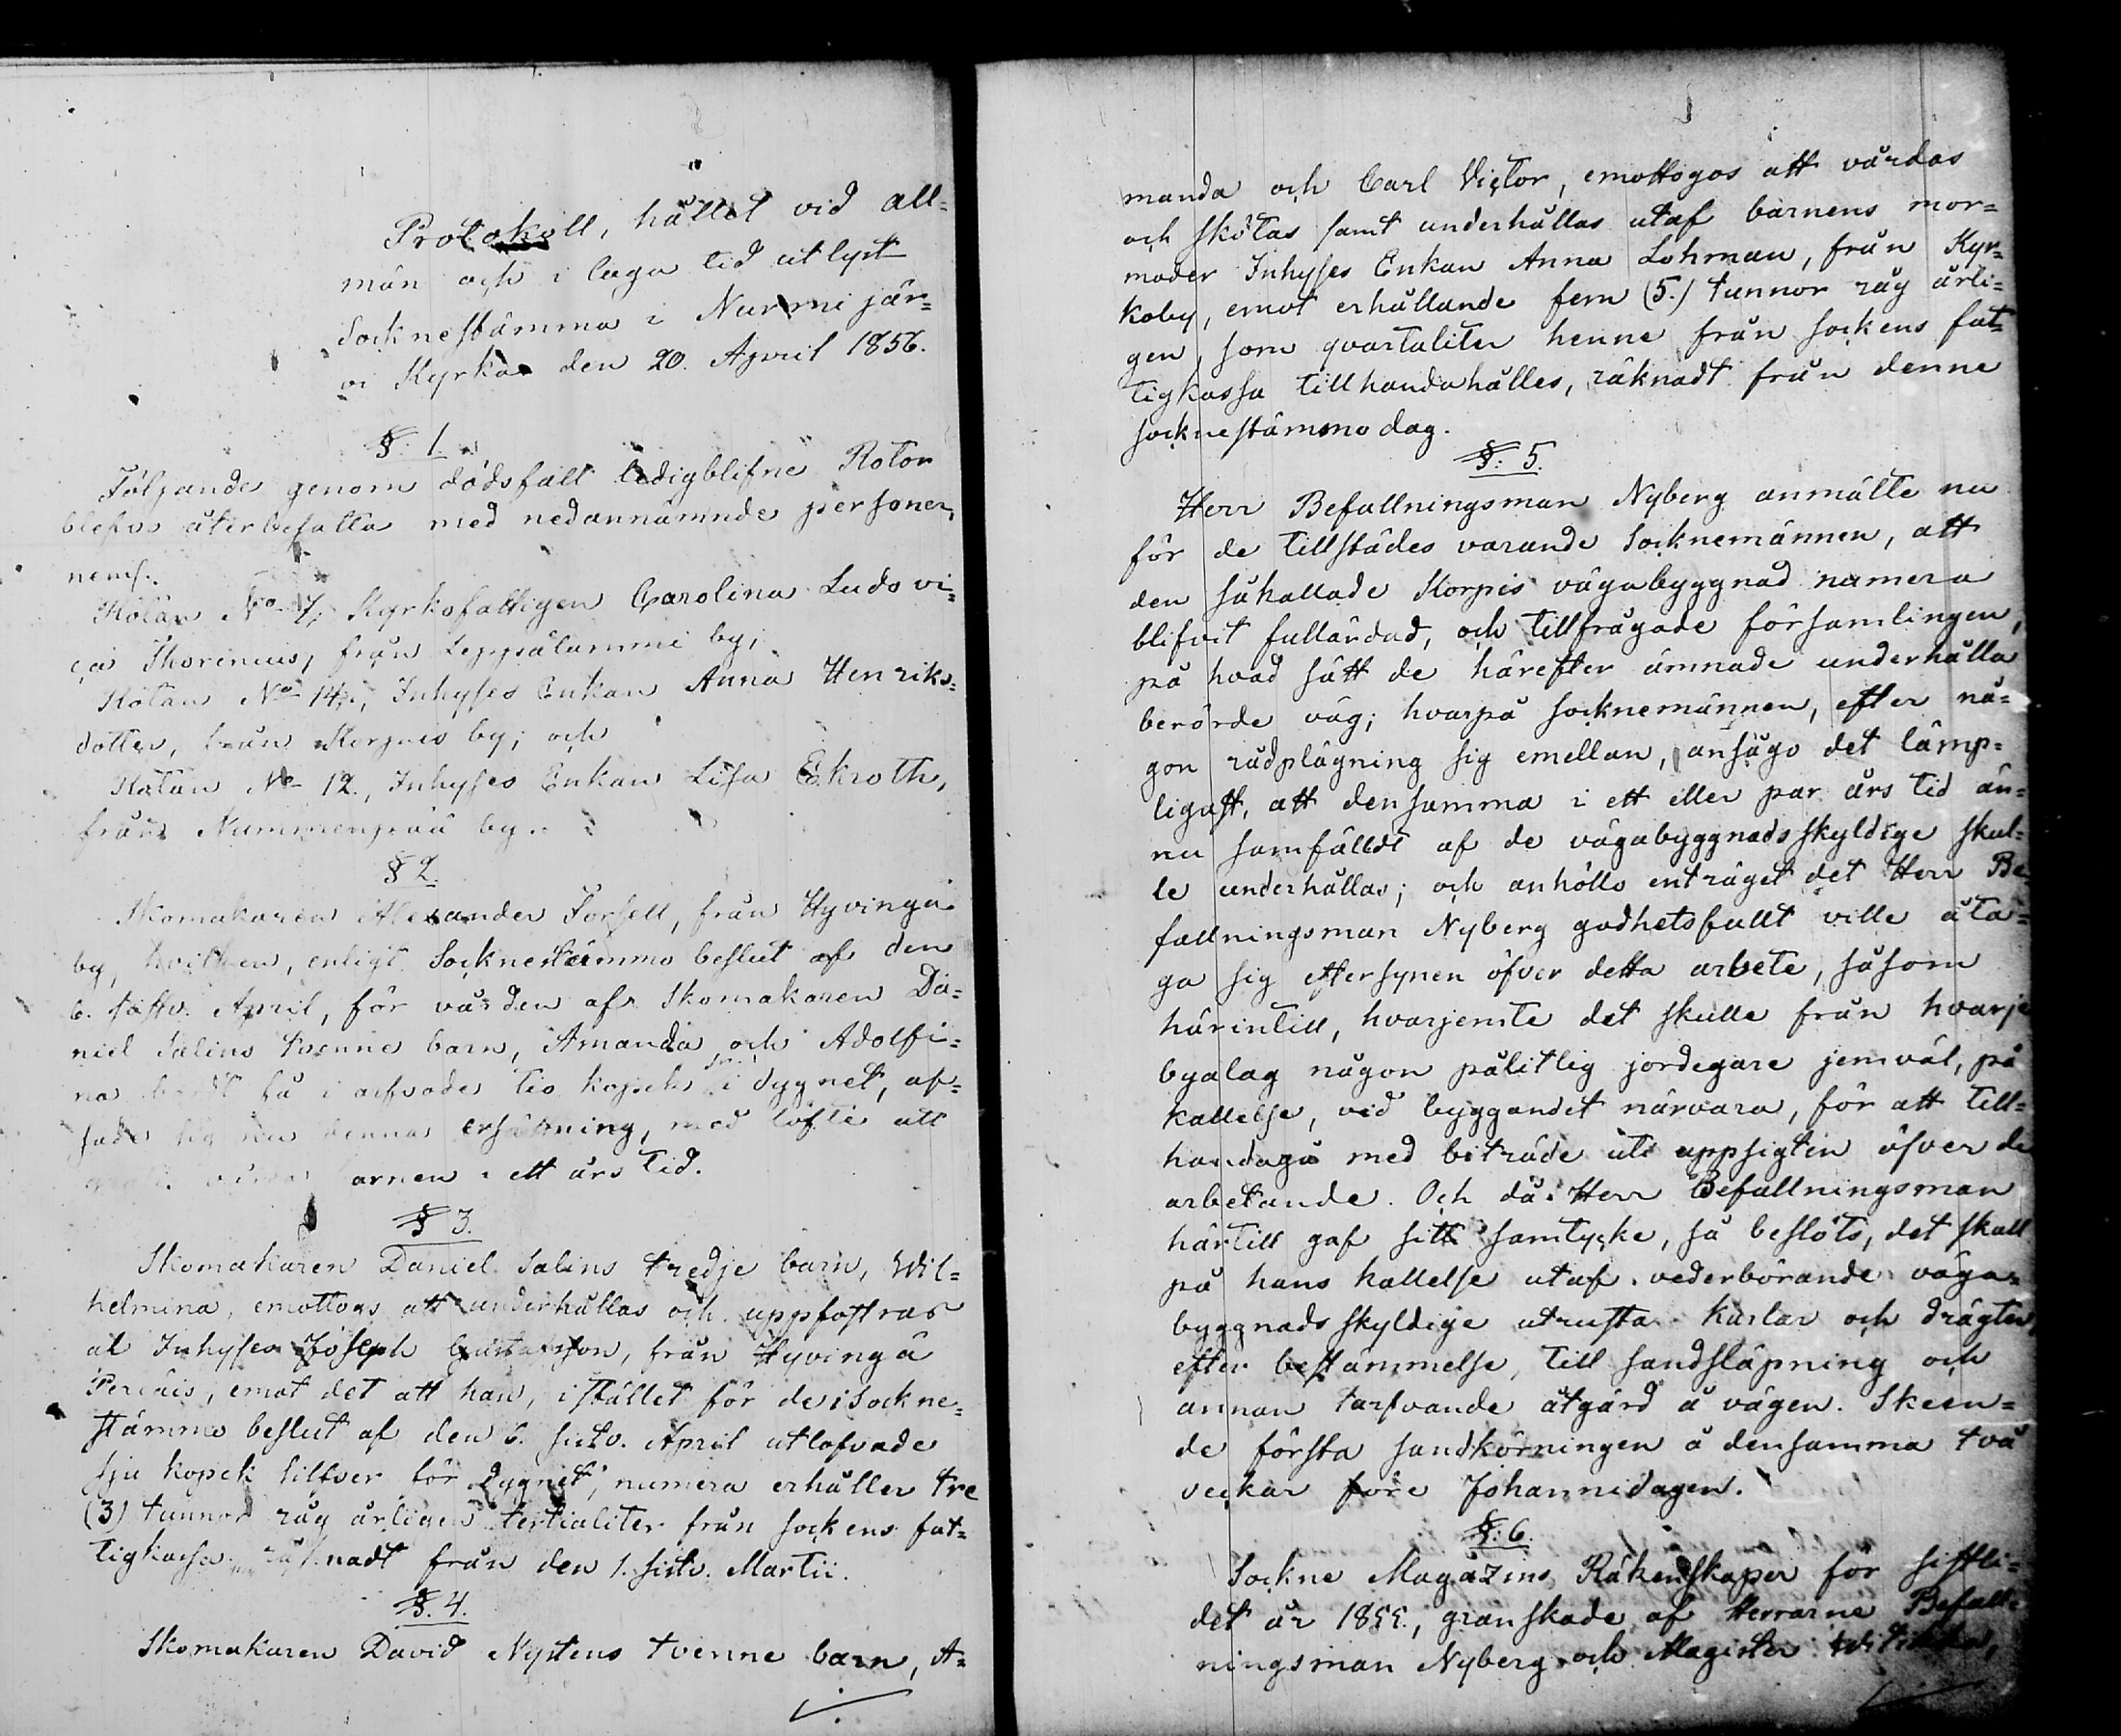 Protokoll, hållet vid all-
män och i laga tid utlyst
Socknestämma i Nurmijär-
vi Kyrka den 20. April 1856.
§. 1.
Följande genom dödsfall ledigblifne Rotor
blefvo återbesatta med nedannämnde personer,
neml.
Rotan No 7, Kyrkofattigen Carolina Ludovi-
ca Thorenius, från Leppälammi by;
Rotan No 14, Inhyses Enkan Anna Henriks-
dotter, från Korpis by; och
Rotan No 12., Inhyses Enkan Lisa Ekroth,
från Nummenpää by.
§ 2.
Skomakaren Alexander Forsell, från Hyvingä
by, hvilken, enligt Socknestämmo beslut af den
6. sistv. April, för vården af Skomakaren Da-
niel Salins tvenne barn, Amanda och Adolfi-
na få i arfvode tio kopek i dygnet, af-
sade sig nu denna ersättning, med löfte att
arnen i ett års tid.
§ 3.
Skomakaren Daniel Salins tredje barn, Wil-
helmina, emottogs att underhållas och uppfostras
af Inhyses Joseph Gustafsson, från Hyvingä
Perttuis, emot det att han, istället för de i Sockne-
stämmo beslut af den 6. sistv. April utlofvade
sju kopek silfver för dygnet, numera erhåller tre
(3) tunnor råg årligen tertialiter från sockens fat-
tigkassa, räknadt från den 1. sistv. Martii.
§. 4.
Skomakaren David Nystens tvenne barn, A-
manda och Carl Victor, emottogos att vårdas
och skötas samt underhållas utaf barnens mor-
moder Inhyses Enkan Anna Lohman, från Kyr-
koby, emot erhållande fem (5.) tunnor råg årli-
gen, som qvartaliter henne från sockens fat-
tigkassa tillhandahålles, räknadt från denne
socknestämmo dag.
§: 5.
Herr Befallningsman Nyberg anmälte nu
för de tillstädes varande Socknemännen, att
den såkallade Korpis vägabyggnad numera
blifvit fulländad, och tillfrågade församlingen,
på hvad sätt de härefter ämnade underhålla
berörde väg; hvarpå socknemännen, efter nå-
gon rådplägning sig emellan, ansågo det lämp-
ligast, att densamma i ett eller par års tid än-
nu samfäldt af de vägabyggnadsskyldige skul-
le underhållas; och anhöllo enträget det Herr Be-
fallningsman Nyberg godhetsfullt ville åta-
ga sig eftersynen öfver detta arbete, såsom
härintill, hvarjemte det skulle från hvarje
byalag någon pålitlig jordegare jemväl, på
kallelse, vid byggandet närvara, för att till-
handagå med biträde uti uppsigten öfver de
arbetande. Och då Herr Befallningsman
härtill gaf sitt samtycke, så beslöts, det skall
på hans kallelse utaf vederbörande väga-
byggnadsskyldige utrusta karlar och drägter,
efter bestämmelse, till sandsläpning och
annan tarfvande åtgärd å vägen. Skeen-
de första sandkörningen å densamma två
veckar före Johannidagen.
§: 6.
Sockne Magazins Räkenskaper för sistli-
det år 1855., granskade af Herrarne Befall-
ningsman Nyberg och Magister